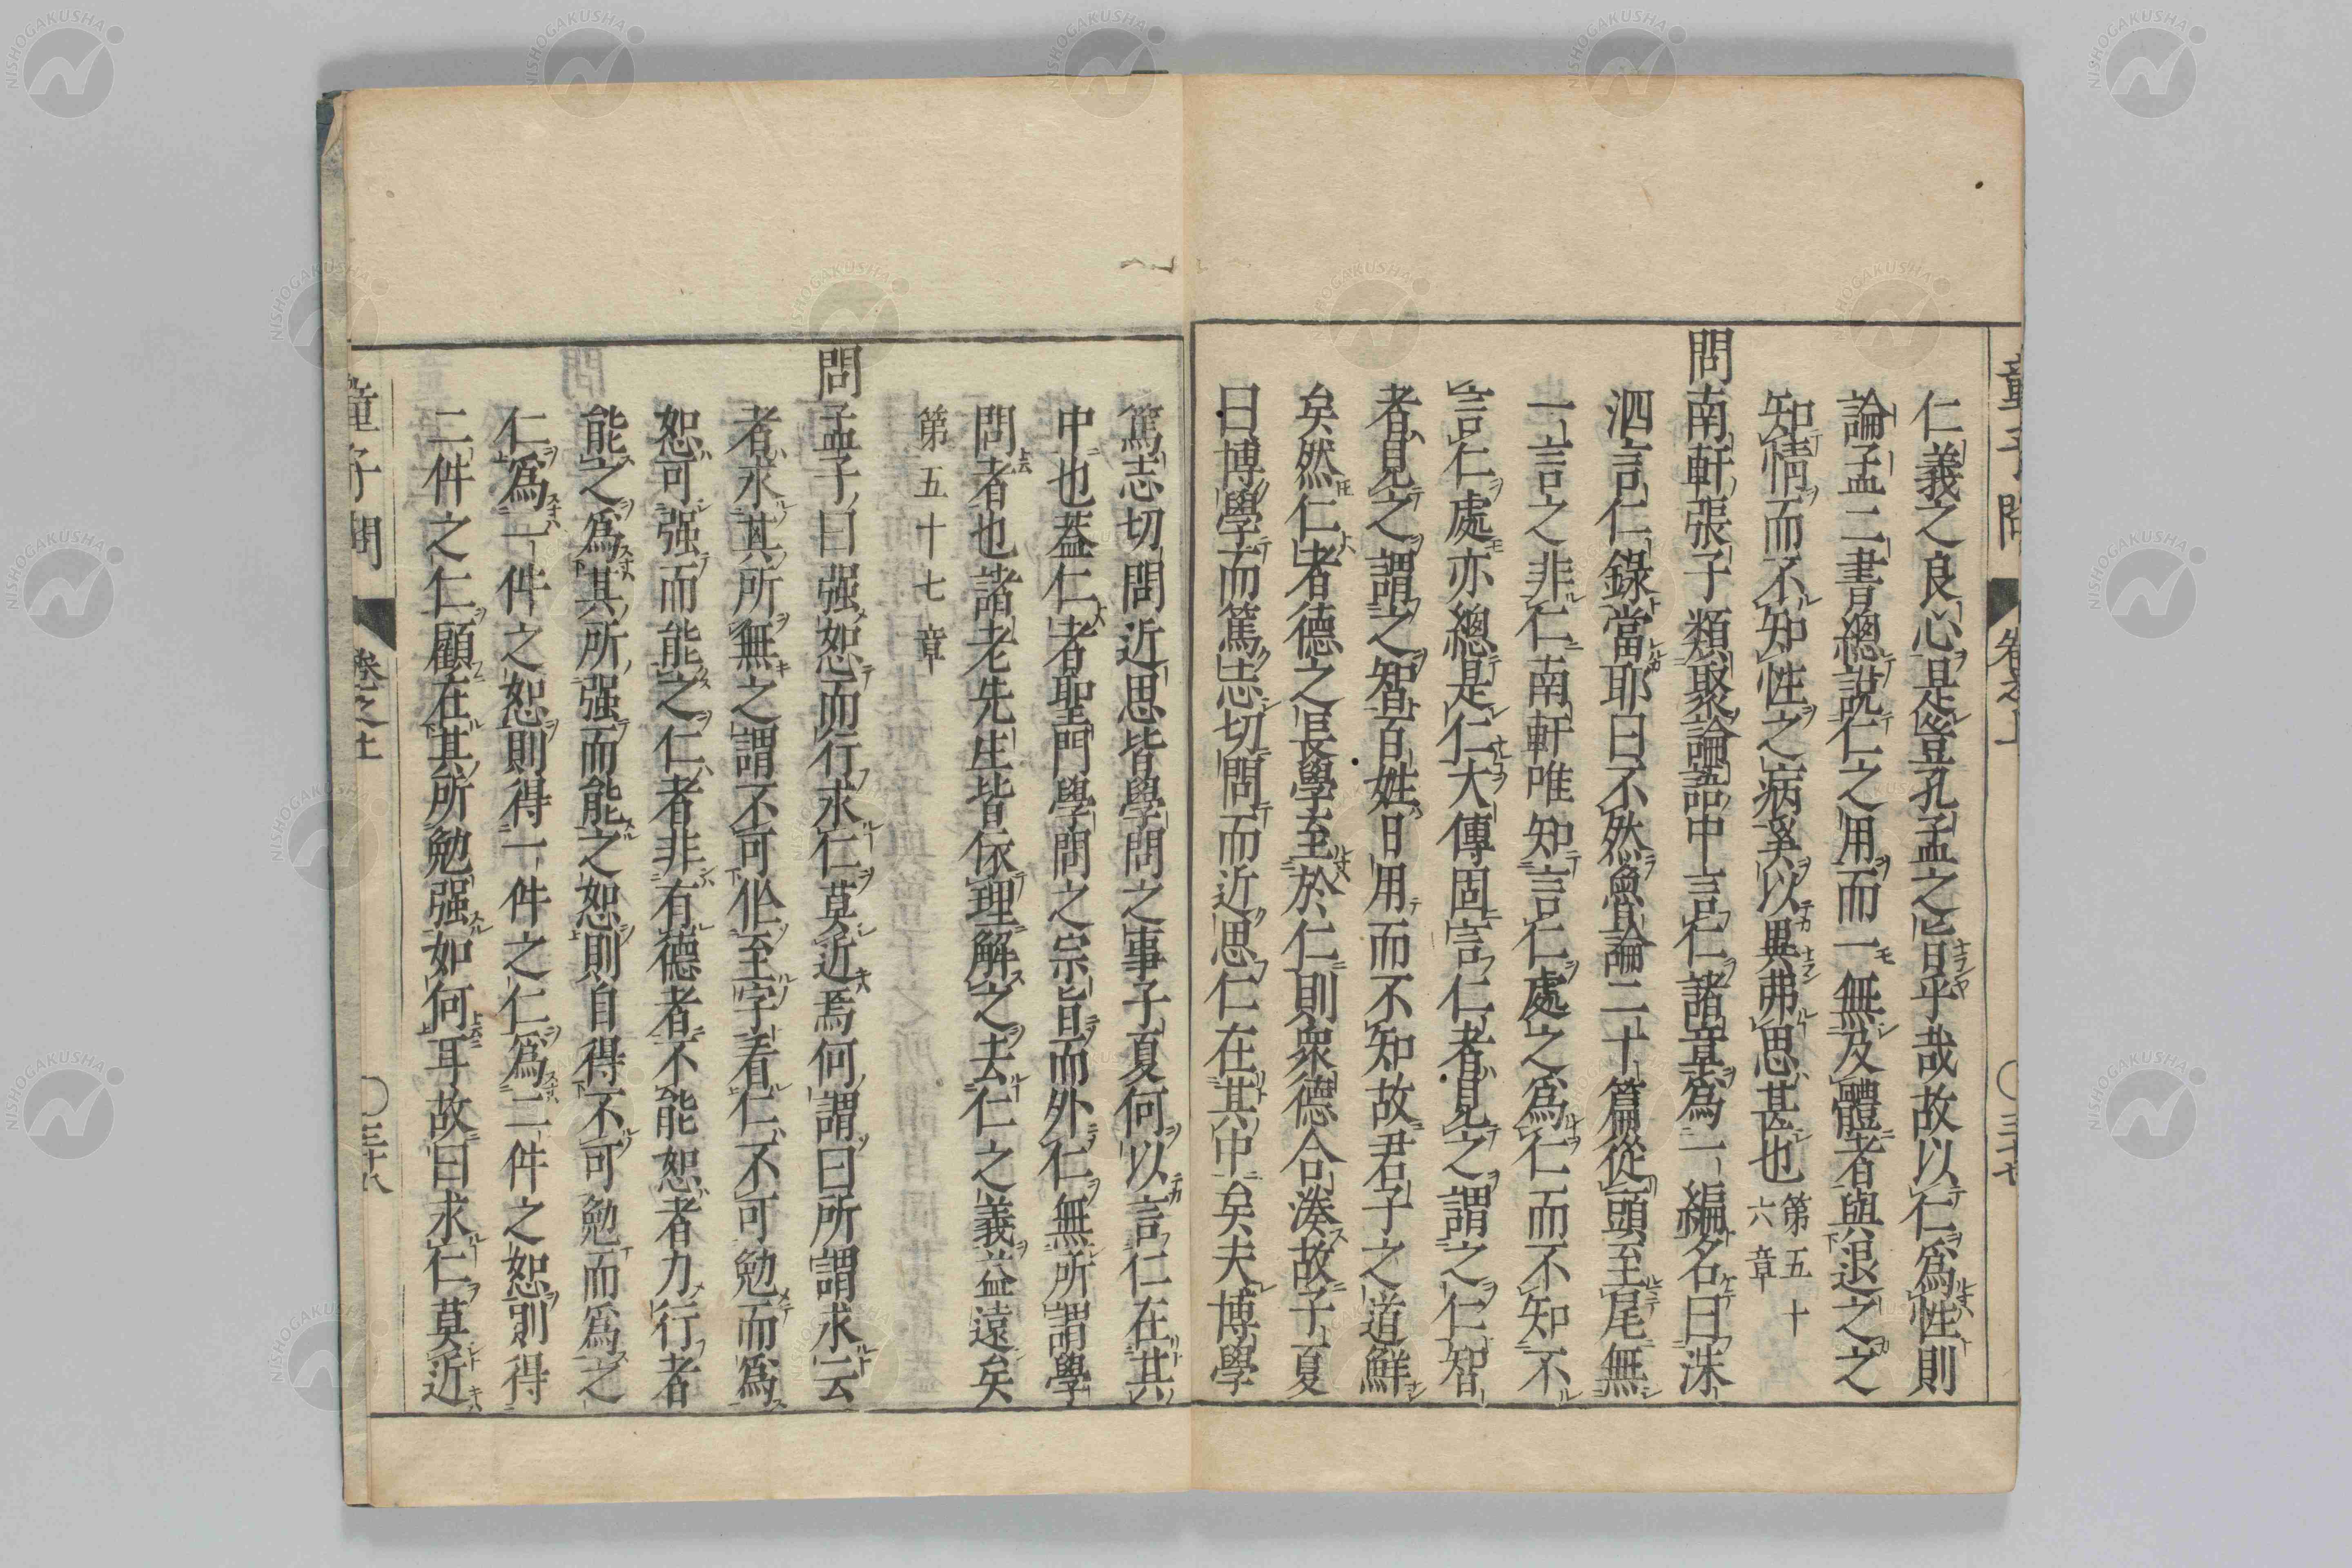 仁義之良心是豈孔孟之旨乎哉故以仁爲性則
論孟二書總說仁之用而一無及體者與退之之
知情而不知性之病奚以異弗思甚也第五十六章
問南軒張子類聚論語中言仁諸章爲一編名曰洙
泗言仁錄當耶曰不然魯論二十篇從頭至尾無
一言之非仁南軒唯知言仁處之爲仁而不知不
言仁處亦總是仁大傳固言仁者見之謂之仁智
者見之謂之智百姓日用而不知故君子之道鮮
矣然仁者德之長學至於仁則衆德合湊故子夏
曰博學而篤志切問而近思仁在其中矣夫博學
篤志切問近思皆學問之事子夏何以言仁在其
中也葢仁者聖門學問之宗旨而外仁無所謂學
問者也諸老先生皆依理解之去仁之義益遠矣
第五十七章
問孟子曰强恕而行求仁莫近焉何謂曰所謂求云
者求其所無之謂不可作至字看仁不可勉而爲
恕可强而能之仁者非有德者不能恕者力行者
能之爲其所强而能之恕則自得不可勉而爲之
仁爲一件之恕則得一件之仁爲二件之恕則得
二件之仁顧在其所勉强如何耳故曰求仁莫近
童子問 卷之上 〇三十七
童子問 卷之上 〇三十八
NISHOGAKUSHA